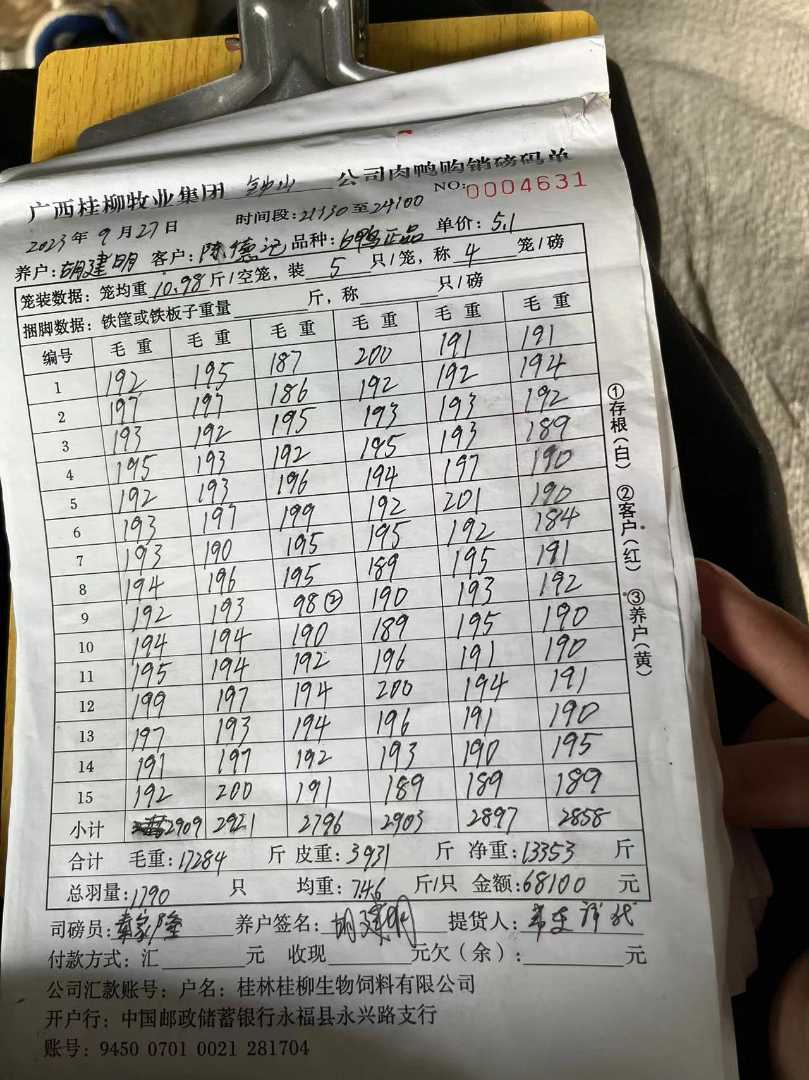 广西桂柳牧业集团 钟山 公司肉鸭购销磅码单
2023年9月27日 时间段:21:30至24:00 NO:0004631
养户:胡建明 客户:陈德记 品种:白鸭正品 单价:5.1
笼装数据:笼均重10.98斤/空笼,装5只/笼,称4笼/磅
捆脚数据:铁筐或铁板子重量____斤,称____只/磅
编号 毛重 毛重 毛重 毛重 毛重 毛重
1 192 195 187 200 191 191
2 197 197 186 192 192 194
3 193 192 195 193 193 192
4 195 193 192 195 193 189
5 192 193 196 194 197 190
6 193 197 199 192 201 190
7 193 190 195 195 192 184
8 194 196 195 189 195 191
9 192 193 98② 190 193 192
10 194 194 190 189 195 190
11 195 194 192 196 191 190
12 199 197 194 200 194 191
13 197 193 194 196 191 190
14 191 197 192 193 190 195
15 192 200 191 189 189 189
小计 2909 2921 2796 2903 2897 2858
合计 毛重:17284斤 皮重:3931斤 净重:13353斤
总羽量:1790只 均重:7.46斤/只 金额:68100元
司磅员: 养户签名:胡建明 提货人:
付款方式:汇____元 收现____元欠(余):____元
公司汇款账号:户名:桂林桂柳生物饲料有限公司
开户行:中国邮政储蓄银行永福县永兴路支行
账号:9450 0701 0021 281704
①存根(白) ②客户(红) ③养户(黄)